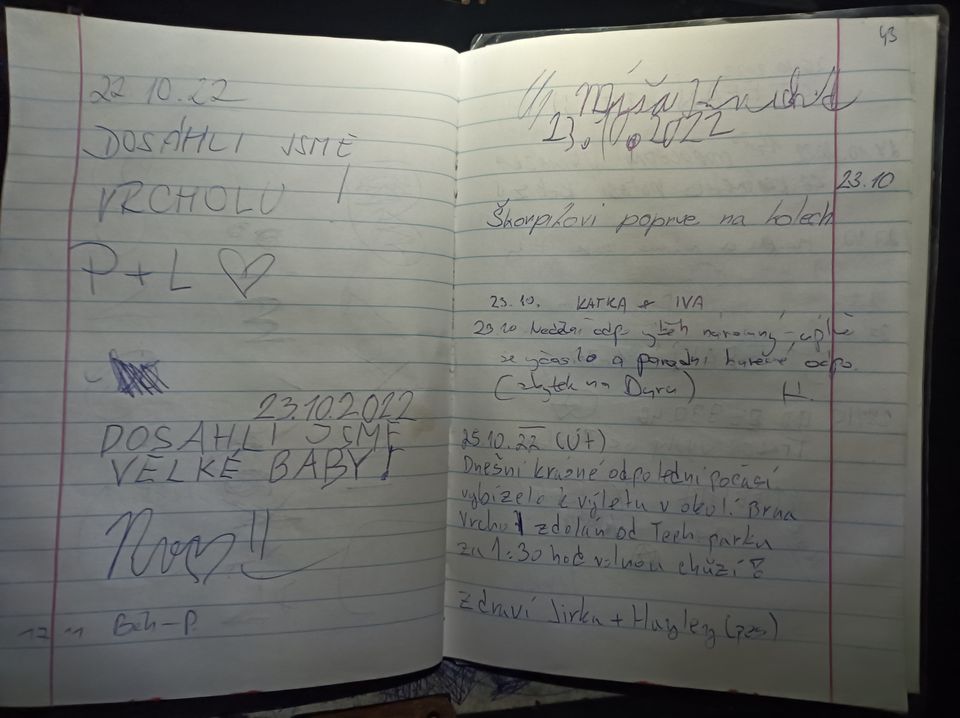 22.10.22
DOSÁHLI JSME
VRCHOLU !
P + L
23.10.2022
DOSÁHLI JSME
VELKÉ BABY!
17 11 Beh-P.
43
Míša
23.10.2022
23.10
Škorpíkovi poprve na kolech
23.10. KATKA + IVA
23.10 Nedělní odp.
se a parádní odpo.
(zbytek na Dara) H.
25.10.22 (ÚT)
Dnešní krásné odpolední počasí
vybízelo k výletu v okolí Brna
Vrchol zdolán od Tech. parku
za 1:30 hod volnou chůzí
Zdraví Jirka + Hayley (pes)